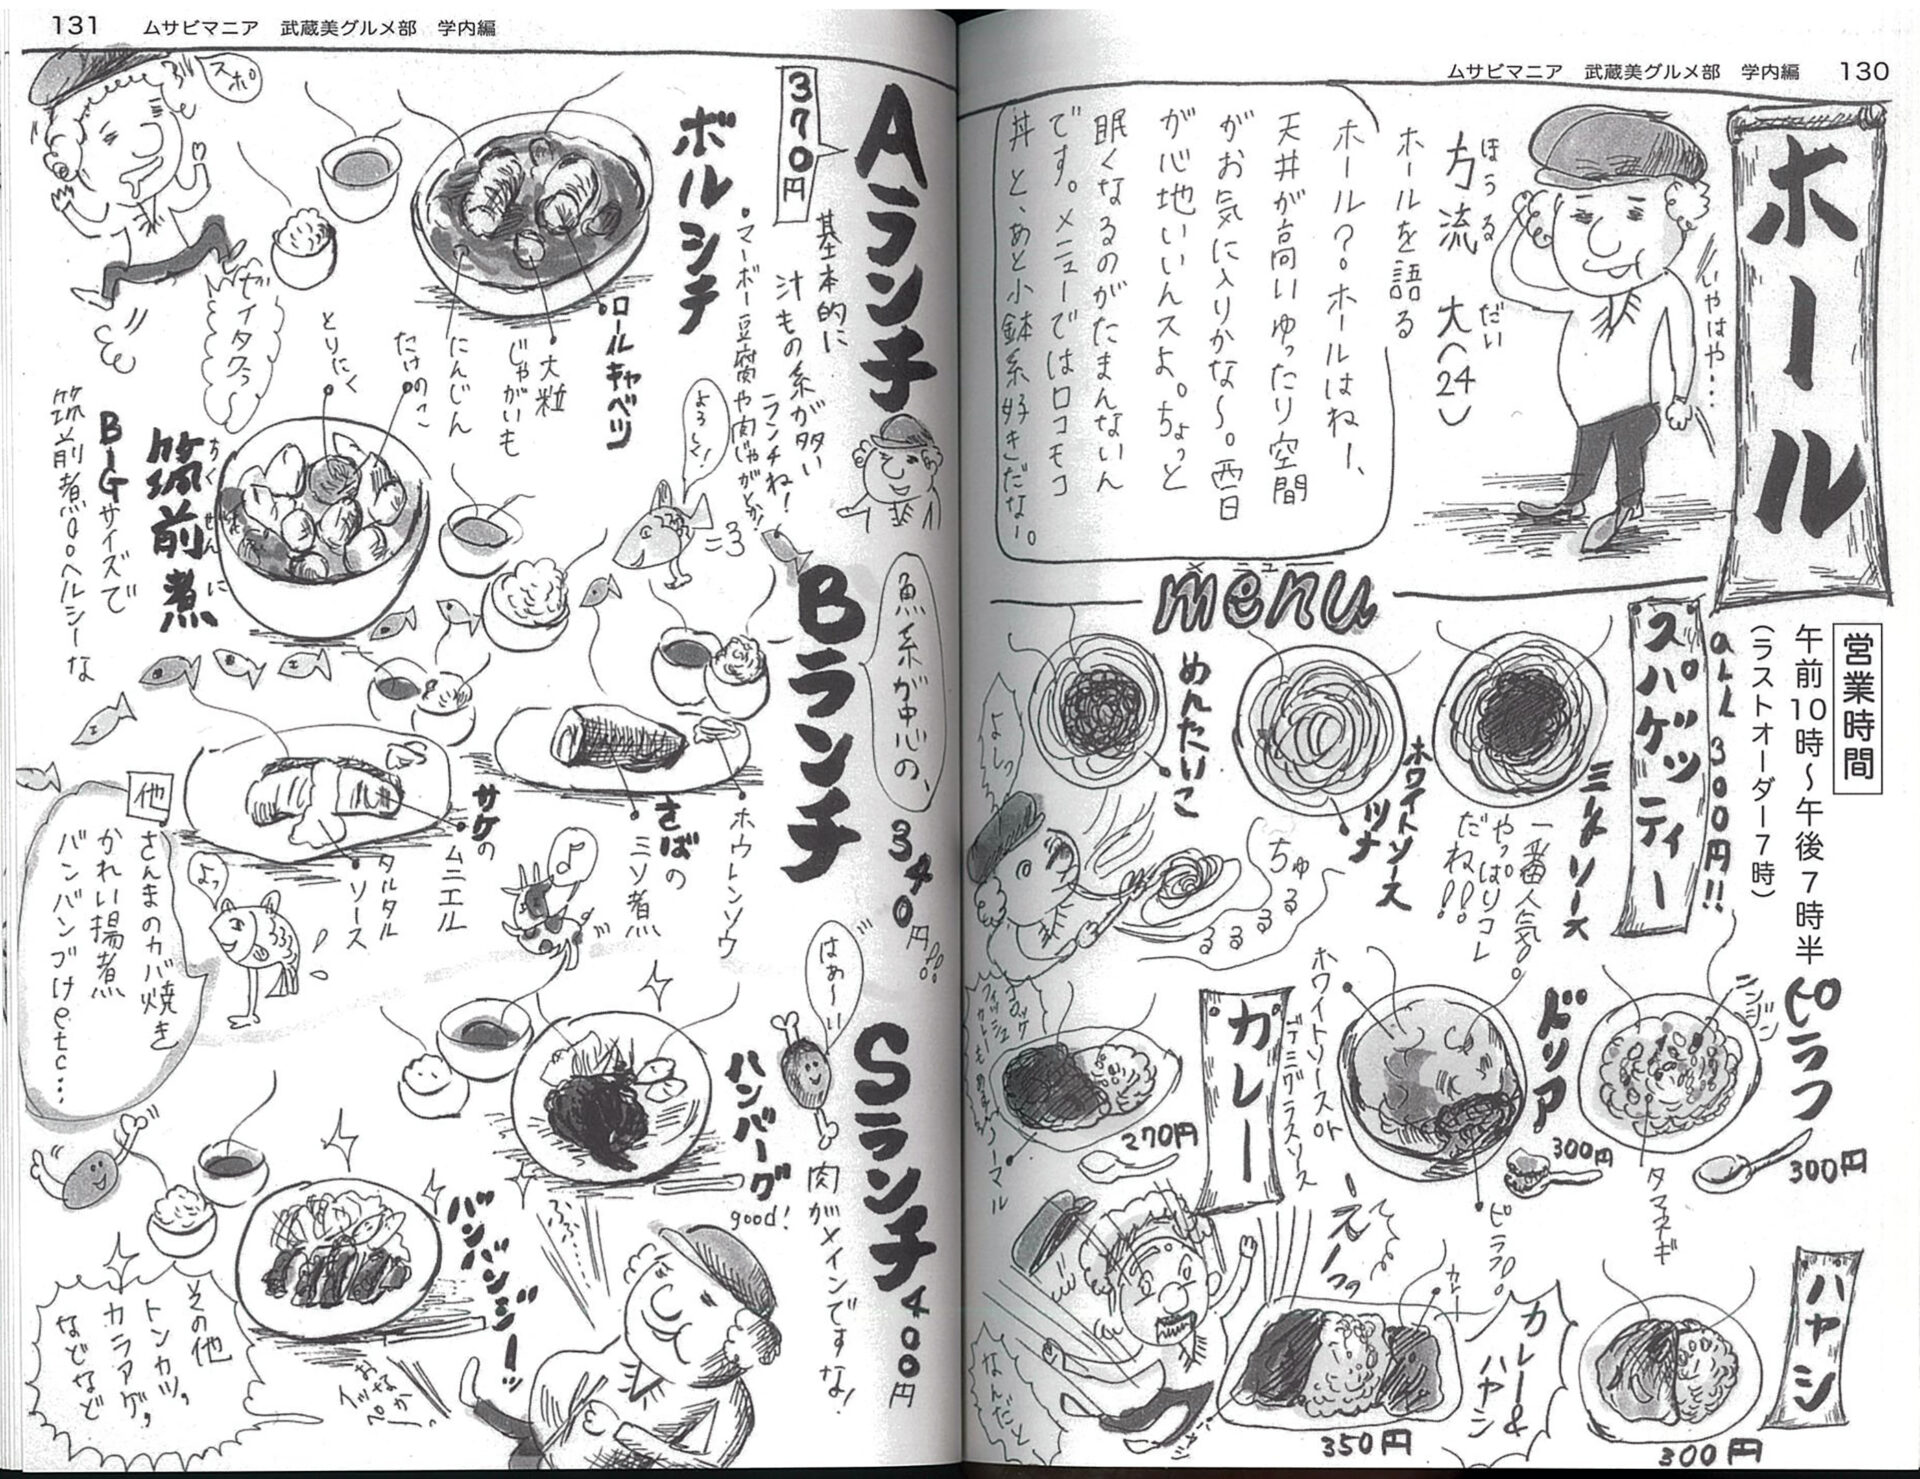 ムサビマニア 武蔵美グルメ部 学内編 130
ホール
いやはや…
ほうる だい
方流 大(24)
ホールを語る
ホール?ホールはね〜、
天井が高いゆったり空間
がお気に入りかな〜。西日
が心地いいんスよ。ちょっと
眠くなるのがたまんないん
です。メニューではロコモコ
丼と、あと小鉢系好きだな〜。
メニュー
menu
営業時間
午前10時〜午後7時半
(ラストオーダー7時)
all 300円!!
スパゲッティー
ミートソース
一番人気。
やっぱりコレ
だね!!
ホワイトソース
ツナ
めんたいこ
よしっ
ちゅる
るるるる
ピラフ
ニンジン
タマネギ
300円
ドリア
ホワイトソースト
デミグラスソース
ピラフ
300円
カレー
ノーマル
270円
ハヤシ
300円
カレー&
ハヤシ
カレー
350円
なんだと
ムサビマニア 武蔵美グルメ部 学内編 131
Aランチ
370円
基本的に
汁もの系が多い
ランチね!
・マーボー豆腐や肉じゃがとか!
ボルシチ
ロールキャベツ
大粒
じゃがいも
にんじん
スポ
ゼイタクぅ〜
たけのこ
とりにく
ちくぜんに
筑前煮
BIGサイズで
筑前煮。ヘルシーな
よろしく!
Bランチ
魚系が中心の、
340円!!
ホウレンソウ
さばの
ミソ煮
サケの
ムニエル
タルタル
ソース
♪
よっ
他
さんまのカバ焼き
かれい揚煮
バンバンヅけetc…
Sランチ
400円
肉がメインですな!
はぁ〜い
ハンバーグ
good!
バンバンジーッ
その他
トンカツ,
カラアゲ,
などなど
おなか
イッパ〜イっ